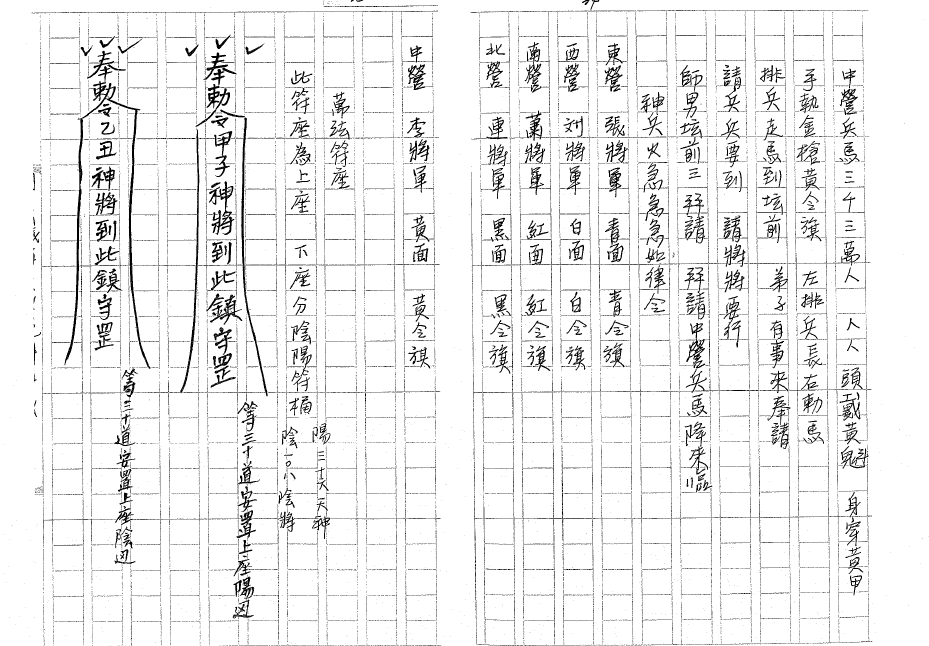 中營兵馬三千三萬人 人人頭戴黃魁 身穿黃甲
手執金槍黃令旗 左排兵長右勒馬
排兵走馬到坛前 弟子有事來奉請
請兵兵要到 請將將要行
師男坛前三拜請 拜請中營兵馬降來臨
神兵火急急急如律令
東營 張將軍 青面 青令旗
西營 刘將軍 白面 白令旗
南營 蕭將軍 紅面 紅令旗
北營 連將軍 黑面 黑令旗
中營 李將軍 黃面 黃令旗
萬法符座
此符座為上座 下座分陰陽符桶
陽三十六天神
陰一０八陰將
奉勅令甲子神將到此鎮守罡
等三十道安置上座陽边
奉勅令乙丑神將到此鎮守罡
等三十道安置上座陰边